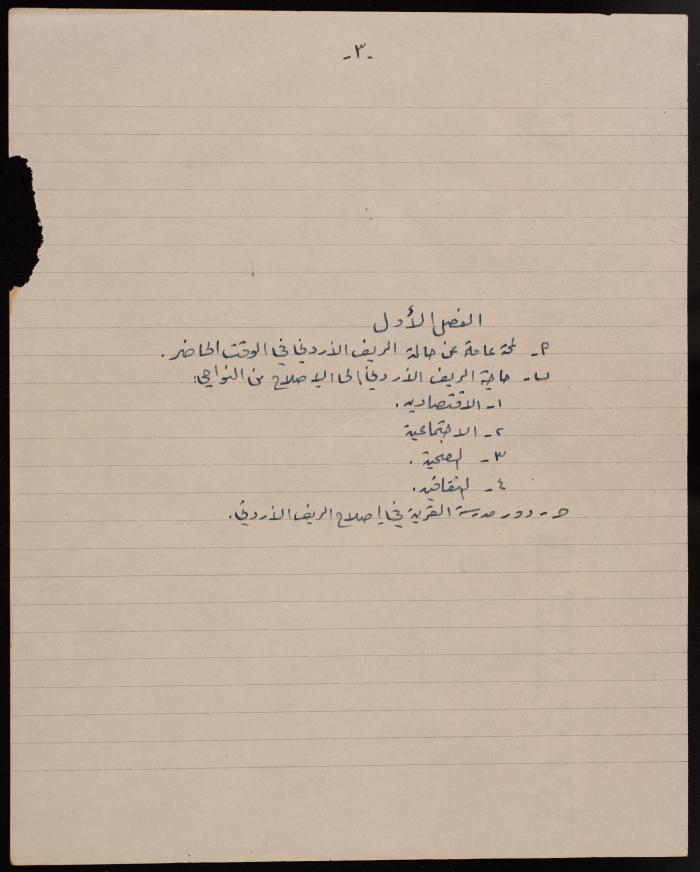 -٣-
الفصل الأول
٢- لمحة عامة عن حالة الريف الأردني في الوقت الحاضر.
ب- حاجة الريف الأردني إلى الإصلاح من النواحي:
١- الاقتصادية.
٢- الاجتماعية
٣- الصحية.
٤- الثقافية.
ح- دور مدرسة القرية في إصلاح الريف الأردني.